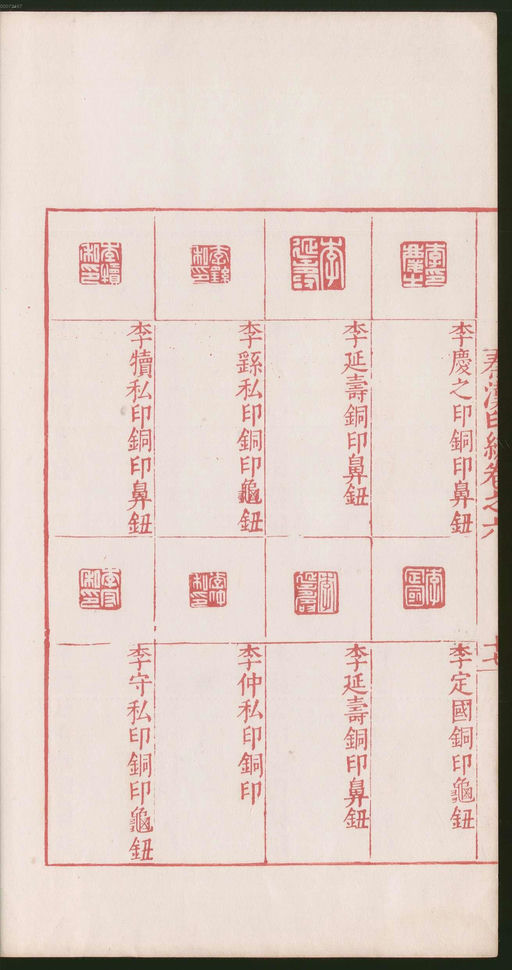 秦漢印統卷之六
十七
李慶之印銅印鼻鈕
李延壽銅印鼻鈕
李繇私印銅印龜鈕
李犢私印銅印鼻鈕
李定國銅印龜鈕
李延壽銅印鼻鈕
李仲私印銅印
李守私印銅印龜鈕